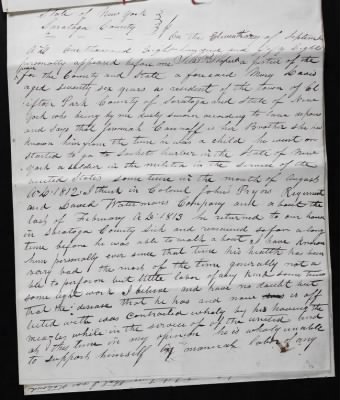 State of New York }
Saratoga County } SS
On the Eleventh of Septemb
A.D. One thousand Eight hundred and fifty Eight
personally appeared before me a justice of the
peace for the County and State a foresaid Mary Davis
aged seventy six years as resident of the town of Cl
ifton Park County of Saratoga and State of New
York who being by me duly sworn according to law deposes
and says that Jeremiah is her Brother she has
known him from the time he was a child he went or
started to go to Sackets harbor in the State of New
York a Soldier in the militia in the Service of the
united States some time in the month of August
A.D. 1812 I think in Colonel John Pryors Regiment
and David Watermors Company and about the
last of February A.D. 1813 he returned to our house
in Saratoga County Sick and remained so for a long
time before he was able to walk about I have known
him personally ever since that time his health has been
very bad the most of the time Generally not a
ble to perform but little labor of any kind some times
some light work I believe and have no doubt but
that the disease that he has and now is aff
licted with was contracted wholy by his having the
measles while in the service of the united
at this time in my opinion he is wholy unable
to support himself by manual labor any